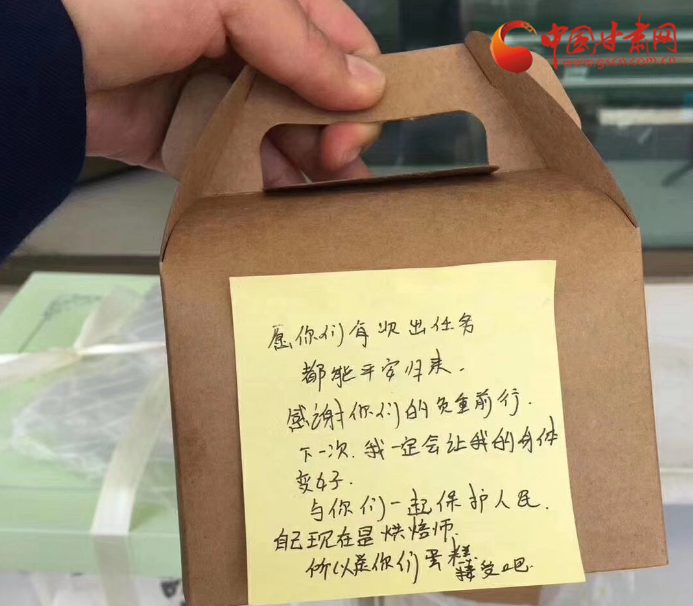 中国甘肃网
www.gscn.com.cn
愿你们每次出任务
都能平安归来.
感谢你们的负重前行.
下一次.我一定会让我的身体
变好.
与你们一起保护人民.
自己现在是烘焙师.
所以送你们蛋糕.
接受吧.